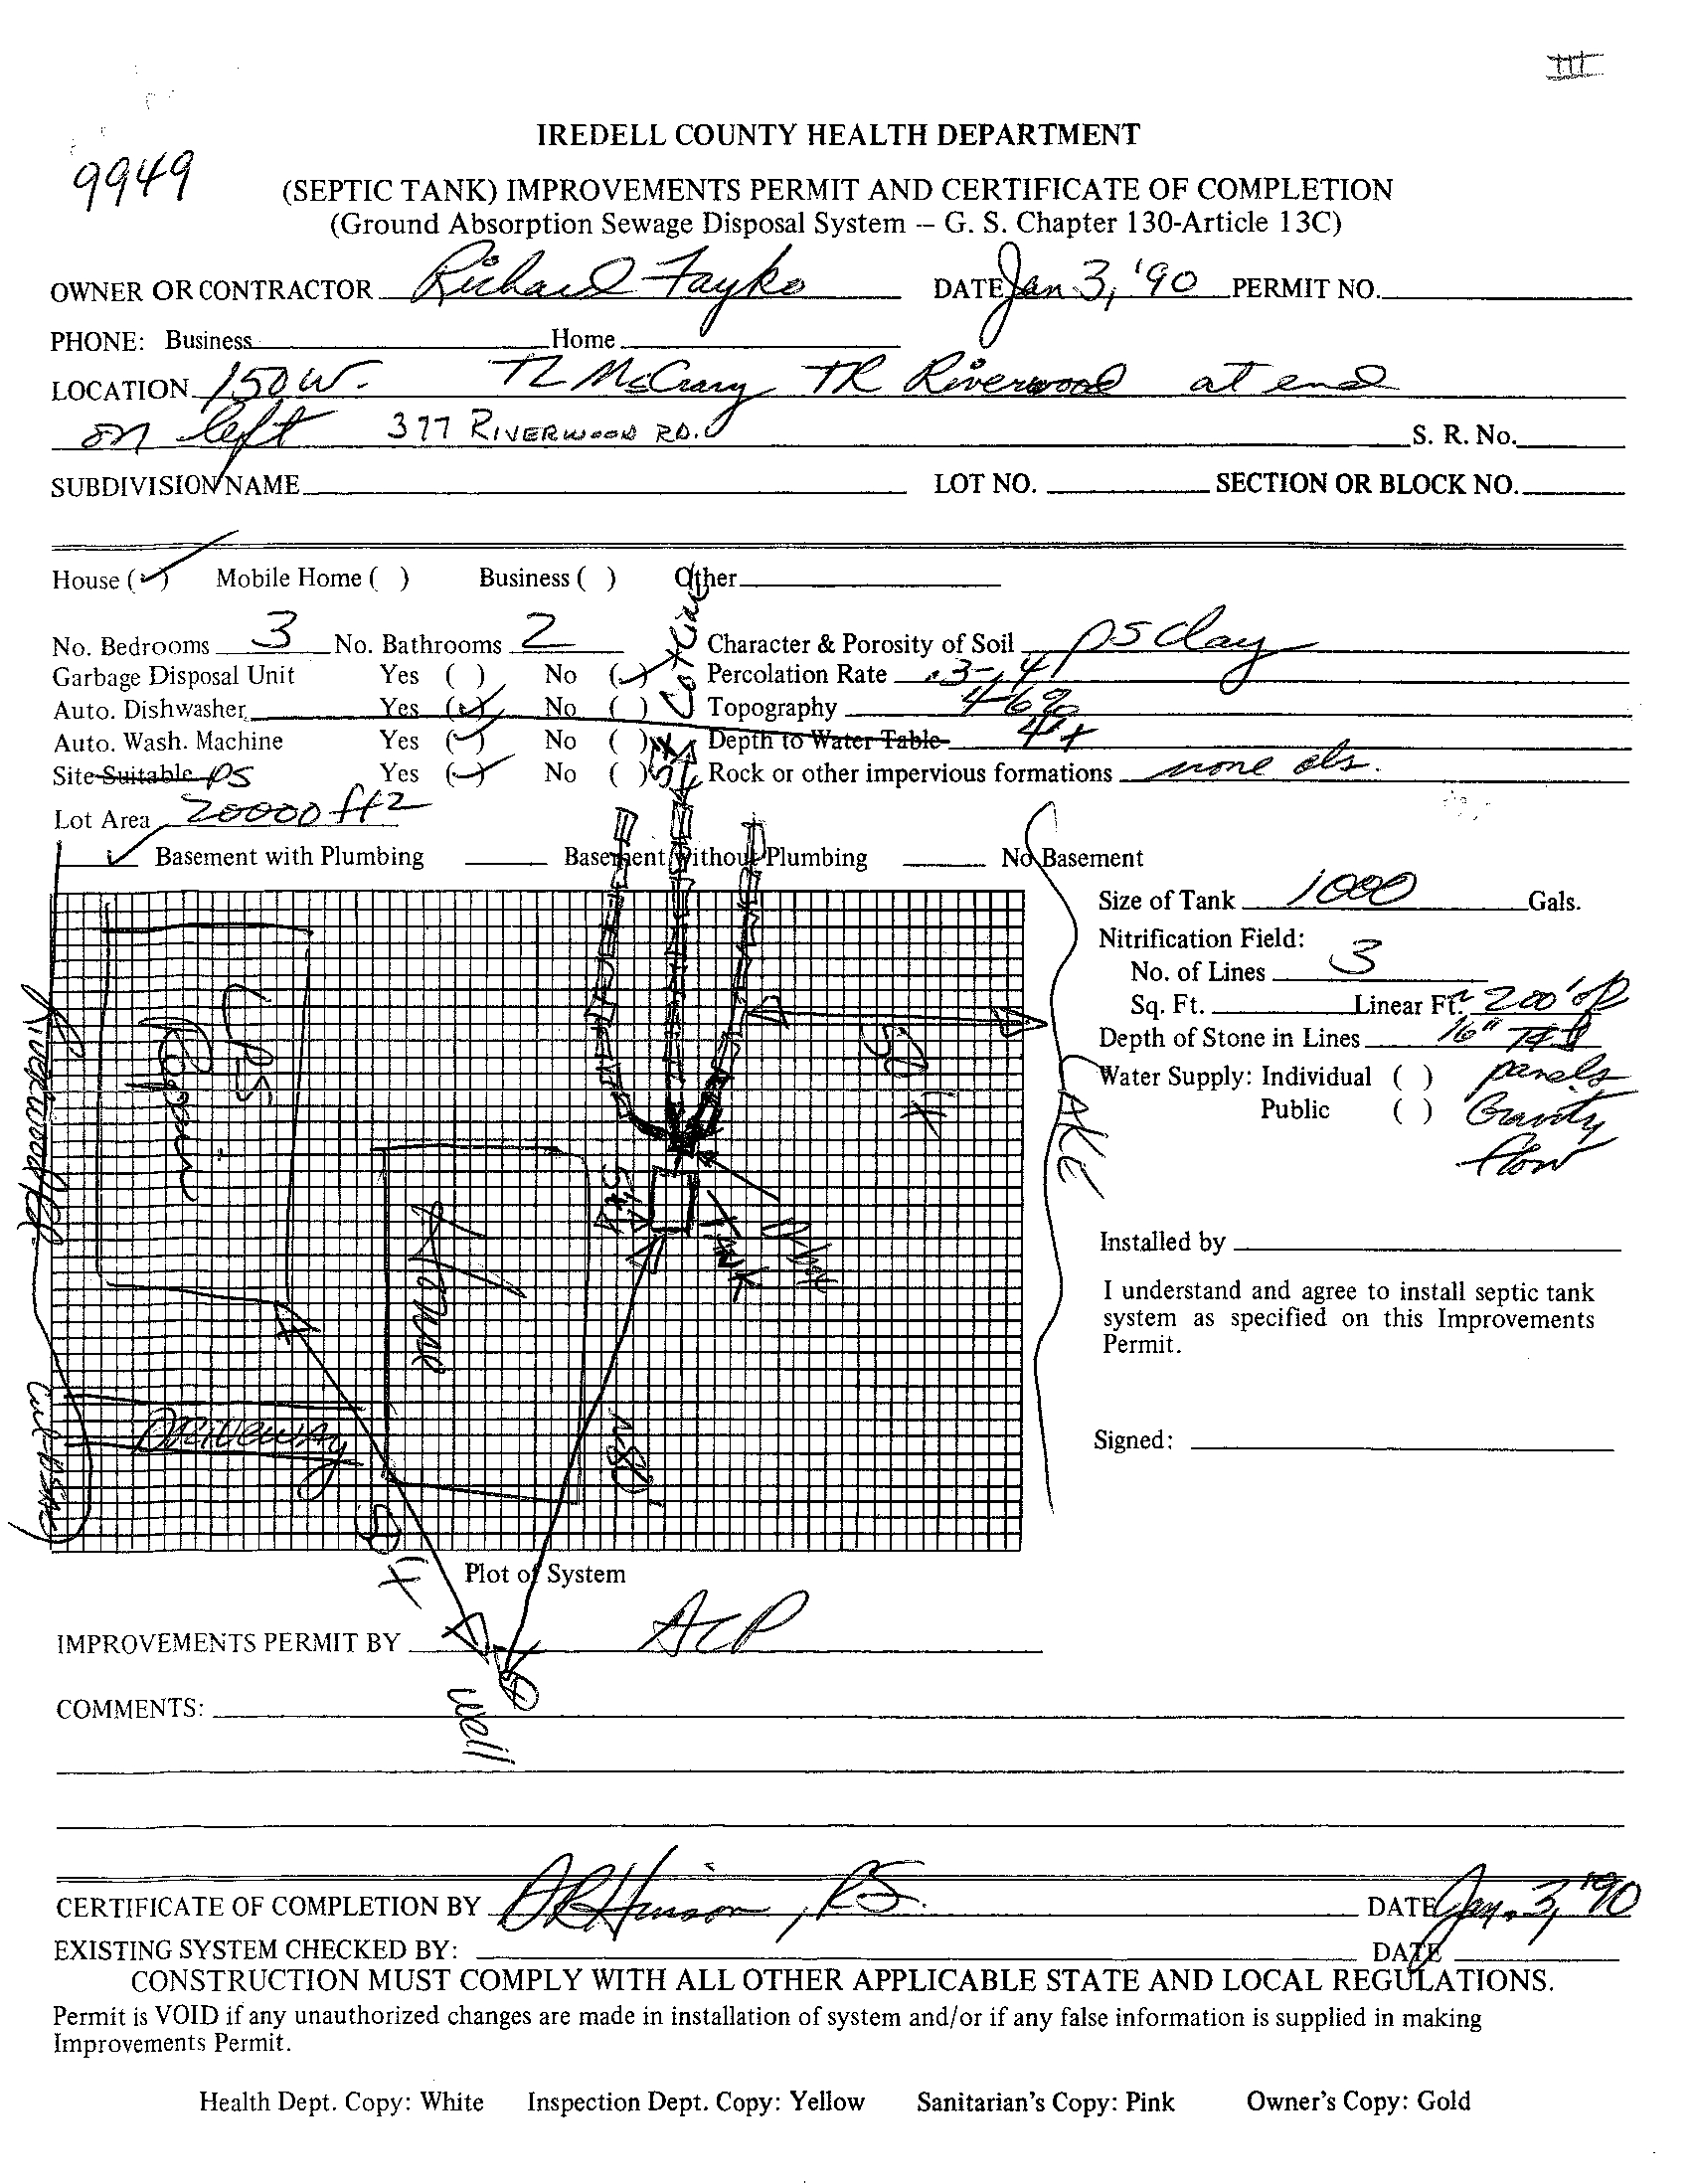 III
IREDELL COUNTY HEALTH DEPARTMENT
9949
(SEPTIC TANK) IMPROVEMENTS PERMIT AND CERTIFICATE OF COMPLETION
(Ground Absorption Sewage Disposal System -- G. S. Chapter 130-Article 13C)
OWNER OR CONTRACTOR Richard Fayko DATE Jan 3, '90 PERMIT NO.
PHONE: Business Home
LOCATION 150 W. TL McCrary TR Riverwood at end
on left 377 RIVERWOOD RD. S. R. No.
SUBDIVISION NAME LOT NO. SECTION OR BLOCK NO.
House (✓) Mobile Home ( ) Business ( ) Other
No. Bedrooms 3 No. Bathrooms 2 Character & Porosity of Soil ps clay
Garbage Disposal Unit Yes ( ) No (✓) Percolation Rate .3-.4
Auto. Dishwasher Yes (✓) No ( ) Topography 4-6%
Auto. Wash. Machine Yes (✓) No ( ) Depth to Water Table 4+
Site Suitable PS Yes (✓) No ( ) Rock or other impervious formations none obs.
Lot Area 20000 ft2
✓ Basement with Plumbing Basement without Plumbing No Basement
Lot Line
Size of Tank 1000 Gals.
Nitrification Field:
No. of Lines 3
Sq. Ft. Linear Ft. ~ 200' of
Depth of Stone in Lines 16"
panels
Water Supply: Individual ( )
Public ( )
Gravity
flow
Riverwood Rd.
Repair
House
5ft
Tank
D-box
LAKE
Driveway
cul-de-sac
Installed by
I understand and agree to install septic tank
system as specified on this Improvements
Permit.
Signed:
Plot of System
IMPROVEMENTS PERMIT BY ACP
COMMENTS:
well
CERTIFICATE OF COMPLETION BY DR Hinson, RS. DATE Jan. 3, '90
EXISTING SYSTEM CHECKED BY: DATE
CONSTRUCTION MUST COMPLY WITH ALL OTHER APPLICABLE STATE AND LOCAL REGULATIONS.
Permit is VOID if any unauthorized changes are made in installation of system and/or if any false information is supplied in making
Improvements Permit.
Health Dept. Copy: White Inspection Dept. Copy: Yellow Sanitarian's Copy: Pink Owner's Copy: Gold